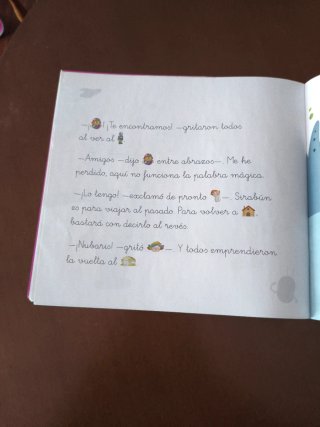 —¡ ! ¡Te encontramos! —gritaron todos
al ver al
—Amigos —dijo entre abrazos—. Me he
perdido, aquí no funciona la palabra mágica.
—¡Lo tengo! —exclamó de pronto —. Sirabún
es para viajar al pasado. Para volver a
bastará con decirlo al revés.
—¡Nubaris! —gritó —. Y todos emprendieron
la vuelta al